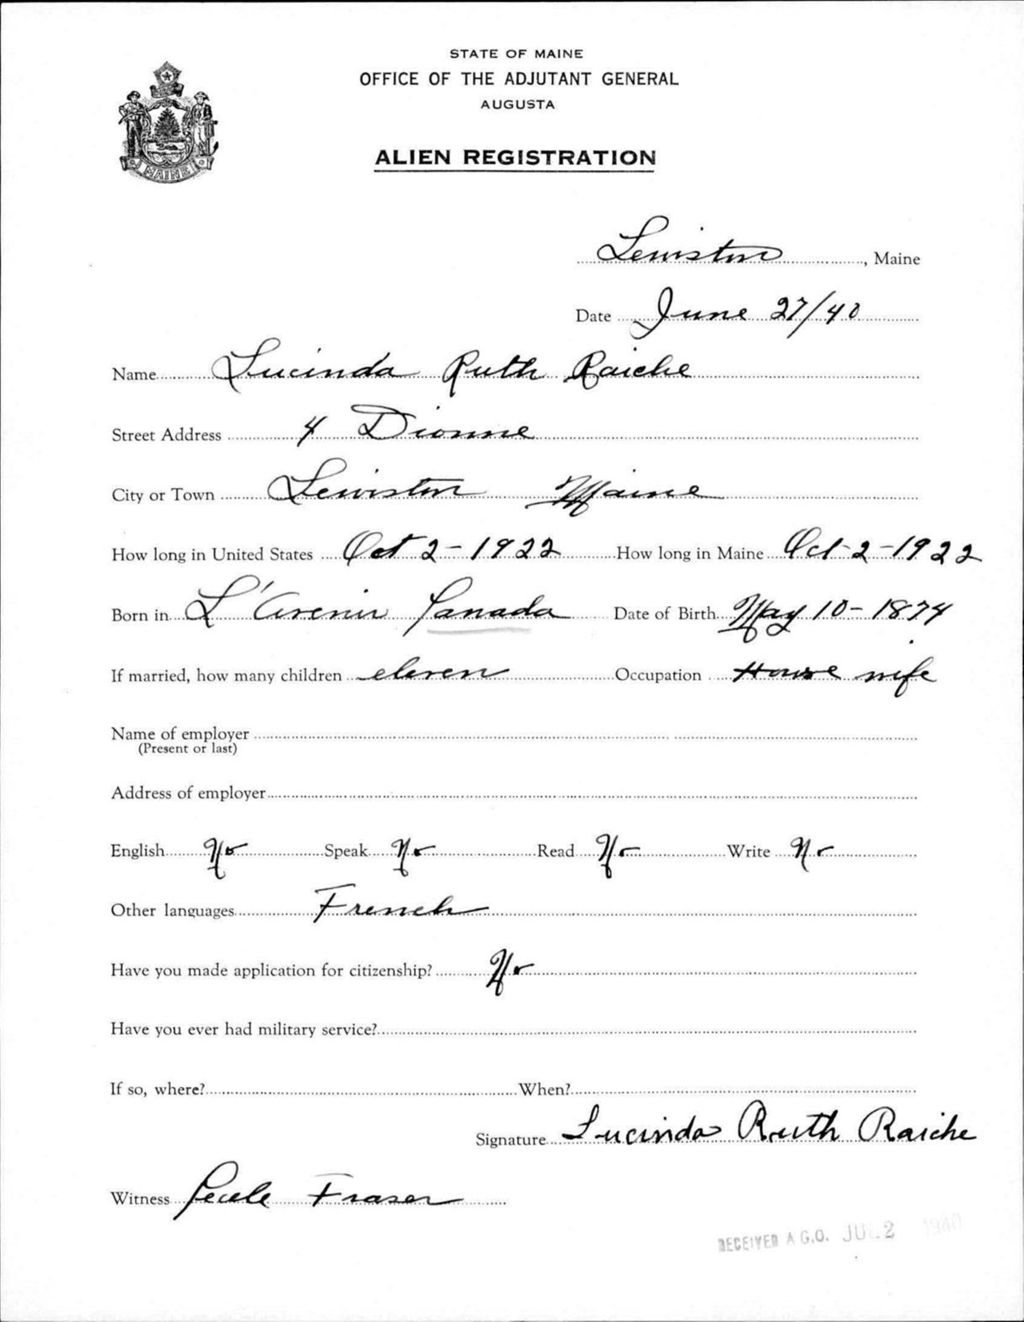 STATE OF MAINE
OFFICE OF THE ADJUTANT GENERAL
AUGUSTA
MAINE
ALIEN REGISTRATION
Lewiston, Maine
Date June 27/40
Name Lucinda Ruth Raiche
Street Address 4 Dionne
City or Town Lewiston Maine
How long in United States Oct 2-1922 How long in Maine Oct-2-1922
Born in L'Avenir Canada Date of Birth May 10-1874
If married, how many children eleven Occupation House wife
Name of employer
(Present or last)
Address of employer
English No Speak No Read No Write No
Other languages French
Have you made application for citizenship? No
Have you ever had military service?
If so, where? When?
Signature Lucinda Ruth Raiche
Witness Cecile Fraser
RECEIVED A.G.O. JUL 2 1940